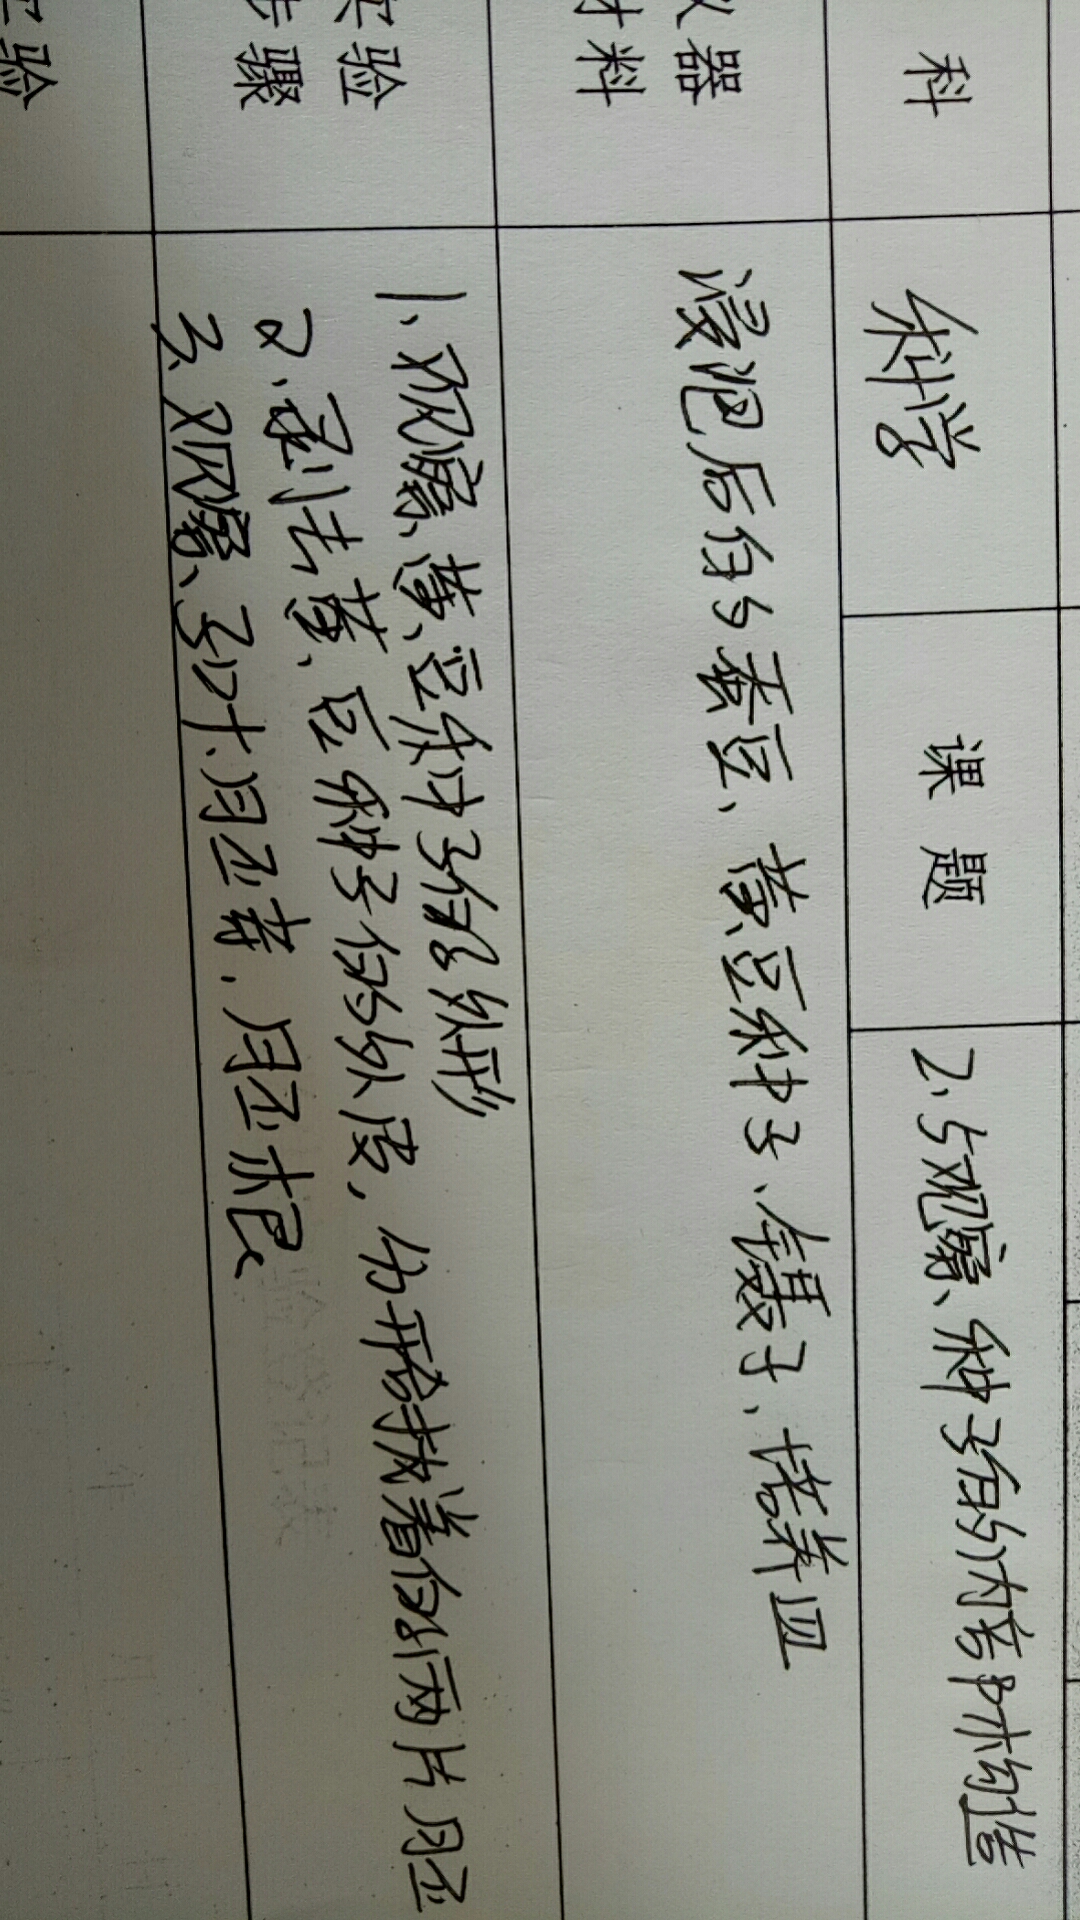 科 科学 课题 2.5观察种子的内部构造
仪器 浸泡后的蚕豆、黄豆种子、镊子、培养皿
材料
实验 1、观察黄豆种子的外形
步骤 2、剥去黄豆种子的外皮,分开合拢着的两片胚
3、观察子叶、胚芽、胚根
实验